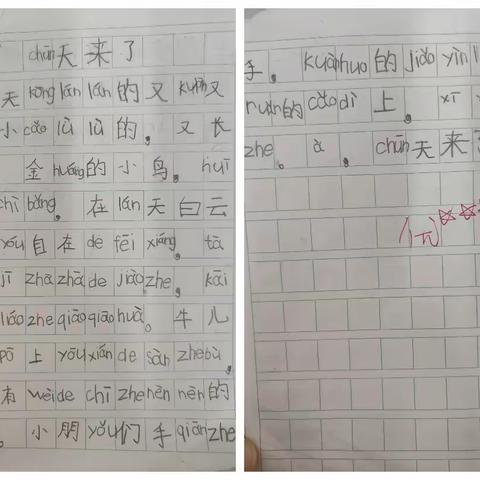 chūn天来了
天kōng lán lán的又kuān又
小cǎo lǜ lǜ的，又长
金huáng的小鸟，huī
chì bǎng，在lán天白云
yóu自在de fēi xiáng，tā
jī zhā zhā de jiào zhe，kāi
liáo zhe qiāo qiāo huà。牛儿
pō上yōu xián de sàn zhe bù，
有wèi de chī zhe nèn nèn的
。小朋yǒu们手qiān zhe
手，kuài huo的jiǎo yìn l
ruǎn的cǎo dì上。xī
zhe。à，chūn天来了
优